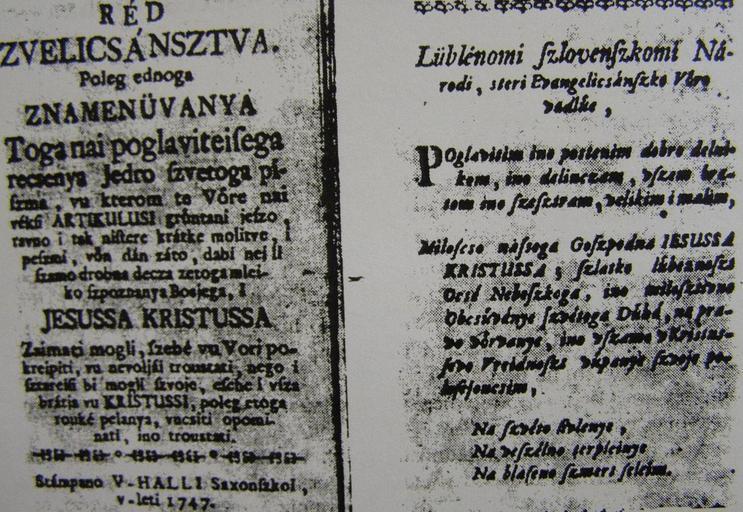 RÉD
ZVELICSÁNSZTVA.
Poleg ednoga
ZNAMENÜVANYA
Toga nai poglaviteisega
recsenya Jedro szvetoga pi-
szma, vu kterom te Vöre nai
vékši ARTIKULUSI gröntani jeszo,
ravno i tak nistere krátke molitve, i
peszmi, vön dán záto, dabi nej li
szamo drobna decza
ko szpoznanya Bosjega, I
JESUSSA KRISTUSSA
Zaimati mogli, szebé vu Vöri po-
kreipiti, vu nevoljsi troustati, nego i
sztareisi bi mogli szvoje, esche i vsza
brátja vu KRISTUSSI, poleg etoga
rouké pelanya, vucsiti opomi-
nati, ino troustati.
Stámpano V-HALLI Saxonszkoi,
v-leti 1747.
Lüblénomi szlovenszkomi Ná-
rodi, steri Evangelicsánszko Vöro
vadlüe,
POglavitim ino postenim dobro delni-
kom, ino delinczam, vszem bra-
tom ino szesztram, velikim i malim,
Miloscso nasega Goszpodna IESUSSA
KRISTUSSA; szlatko lübeznoszt
Ocsé Nebeszkoga, ino
szvétoga Dühá, na pra-
vo vörvanye, ino vszamo vKristus-
vüpanye szvoje po-
Na szvéto
Na veszélno terpleinye
Na blaseno szmert seleim.